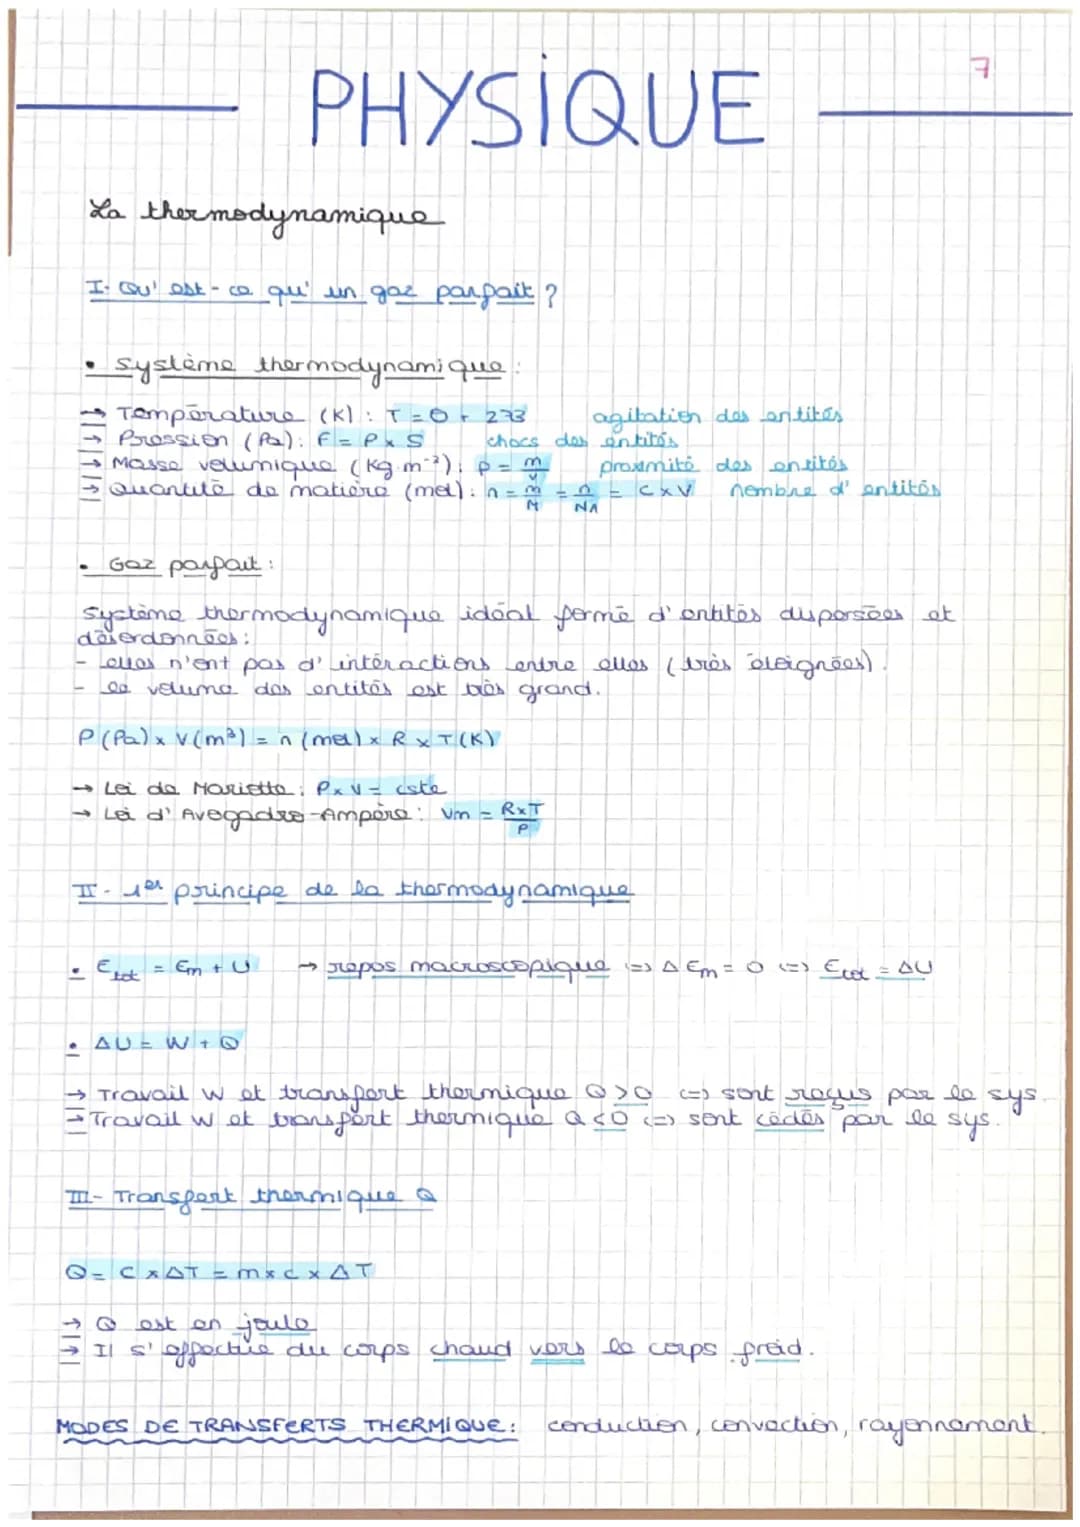 7
PHYSIQUE
La thermodynamique
I- Qu'est-ce qu'un gaz parfait ?
• Système thermodynamique :
→ Température (K) : T = θ + 273 agitation des entités
→ Pression (Pa) : F = P x S chocs des entités
→ Masse volumique (Kg.m⁻³) : ρ = m/V proximité des entités
→ Quantité de matière (mol) : n = m/M = n/NA = C x V nombre d'entités
• Gaz parfait :
Système thermodynamique idéal formé d'entités dispersées et
désordonnées :
- elles n'ont pas d'intéractions entre elles (très éloignées).
- le volume des entités est très grand.
P (Pa) x V (m³) = n (mol) x R x T (K)
→ Loi de Mariotte : P x V = cste
→ Loi d'Avogadro-Ampère : Vm = RxT/P
II- 1er principe de la thermodynamique
• Etot = Em + U → repos macroscopique (=) ΔEm = 0 (=) Etot = ΔU
• ΔU = W + Q
→ Travail W et transfert thermique Q > 0 (=) sont reçus par le sys.
→ Travail W et transfert thermique Q < 0 (=) sont cédés par le sys.
III- Transfert thermique Q
Q = C x ΔT = m x c x ΔT
→ Q est en joule
→ Il s'effectue du corps chaud vers le corps froid.
MODES DE TRANSFERTS THERMIQUE : conduction, convection, rayonnement.